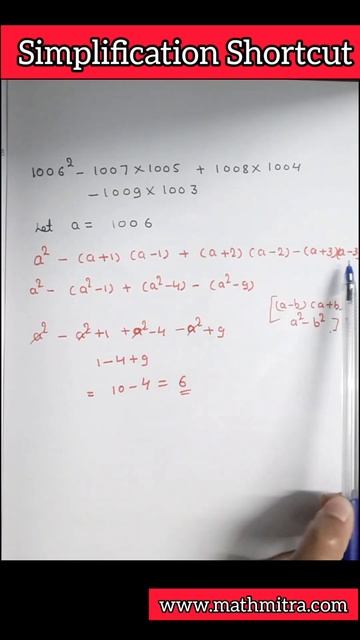 Simplification Shortcut
1006² - 1007 × 1005 + 1008 × 1004
- 1009 × 1003
Let a = 1006
a² - (a+1) (a-1) + (a+2) (a-2) - (a+3)(a-3)
a² - (a²-1) + (a²-4) - (a²-9)
[(a-b) (a+b
a² - b² ]
a² - a² + 1 + a² - 4 - a² + 9
1 - 4 + 9
= 10 - 4 = 6
www.mathmitra.com